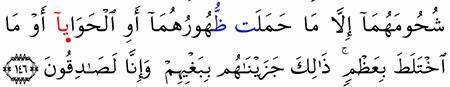 شُحُومَهُمَآ إِلَّا مَا حَمَلَت ظُّهُورُهُمَآ أَوِ ٱلْحَوَايَآ أَوْ مَا
ٱخْتَلَطَ بِعَظْمٍۢ ۚ ذَٰلِكَ جَزَيْنَـٰهُم بِبَغْيِهِمْ ۖ وَإِنَّا لَصَـٰدِقُونَ ﴿١٤٦﴾